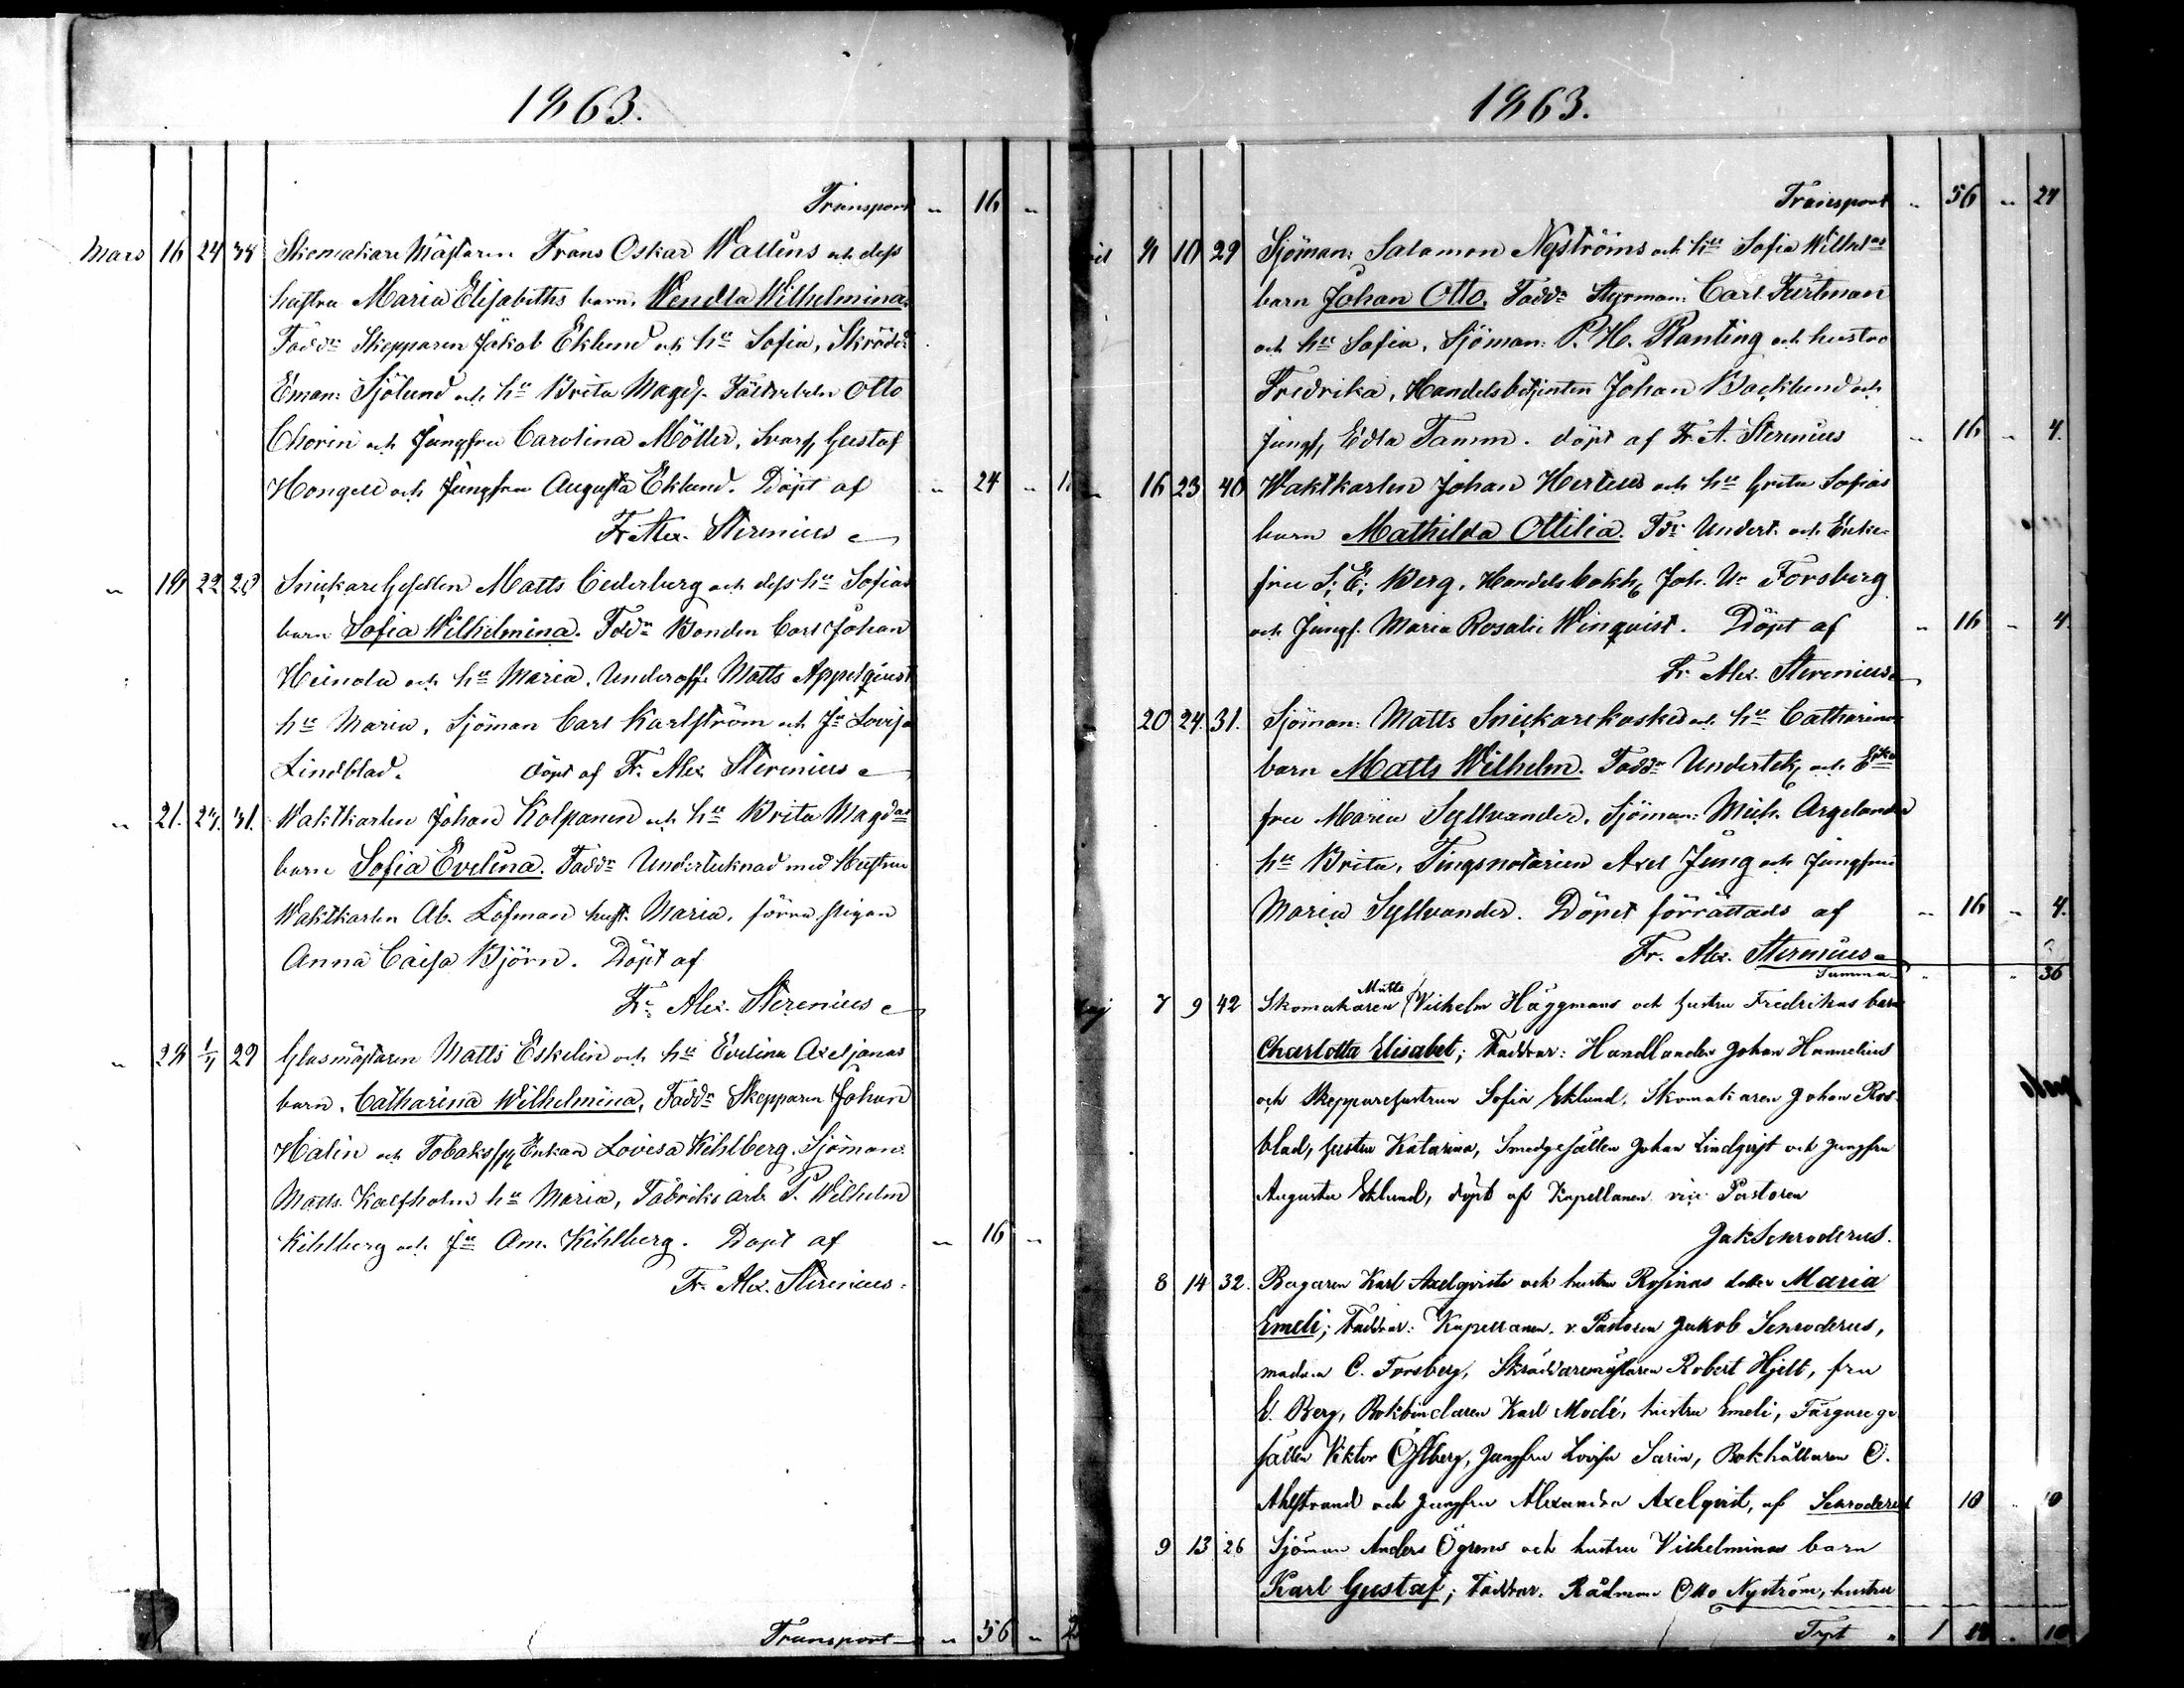 1863.
Transport " 16 "
Mars 16 24 38 Skomakare Mästaren Frans Oskar Walléns och dess
hustru Maria Elisabeths barn, Wendla Wilhelmina.
Faddr Skepparen Jakob Eklund och hu Sofia, Skrädd:
Eman: Sjölund och hu Brita Magd. Otto
Chorin och Jungfru Carolina Möller, Svarf. Gustaf
Hongell och Jungfru Augusta Eklund. Döpt af " 24 "
Fr. Alex. Sterenius
" 18 22 28 Snickare Gesellen Matts Cederberg och dess hu Sofias
barn Sofia Wilhelmina. Fddr Bonden Carl Johan
Heinola och hu Maria. Underoff. Matts Appelqvist
hu Maria, Sjöman Carl Karlström och Jr Lovisa
Lindblad. döpt af Fr. Alex Sterenius
" 21. 24. 31. Waktkarlen Johan Kolpanen och hu Brita Magdas
barn Sofia Evelina. Faddr Undertecknad med Hustru
Waktkarlen Ab. Löfman hust. Maria, förra pigan
Anna Caisa Björn. Döpt af
Fr. Alex. Sterenius
" 28 1/4 29 Glasmästaren Matts Eskelin och hu Evelina Axeljanas
barn, Catharina Wilhelmina, Faddr Skepparen Johan
Malin och Tobakssp. Enkan Lovisa Kihlberg. Sjöman:
Mads. Kalfholm hu Maria, Fabriks arb. P. Wilhelm
Kihlberg och Ju Am. Kihlberg. Döpt af " 16 "
Fr. Alex. Sterenius.
Transport " 56 "
1863.
Transport " 56 " 24
9 10 29 Sjöman: Salomon Nyströms och hu Sofia Wilhelas
barn Johan Otto. Faddr Styrman: Carl Furtman
och hu Sofia, Sjöman: P. H. Ranting och hustru
Fredrika, Handelsbetjenten Johan Backlund och
Jungf. Edla Tamm. döpt af Fr. A. Sterenius " 16 " 4.
" 16 23 40 Waktkarlen Johan Hertus och hu Greta Sofias
barn Mathilda Ottilia. Fdr Undert. och Enke-
fru S: E: Berg. Handelsbokh. Joh. Ur Forsberg
och Jungf. Maria Rosalie Winqvist. Döpt af " 16 " 4.
Fr. Alex. Sterenius
20 24. 31. Sjöman: Matts Snickarekoskis och hu Catharinas
barn Matts Wilhelm. Faddr Undertek. och Enke
fru Maria Syllvander. Sjöman: Mich. Argelander
hu Brita, Tingsnotarien Axel Jung och Jungfru
Maria Syllvander. Döpet förrättads af " 16 " 4.
Fr. Alex. Sterenius
Summa " " 36
Maj 7 9 42 Skomakaren Matts Vilhelm Häggmans och hustru Fredrikas barn
Charlotta Elisabet; Faddrar: Handlanden Johan Hannelius
och Skepparehustrun Sofia Eklund, Skomakaren Johan Ros-
blad, hustru Katarina, Smedgesällen Johan Lindqvist och Jungfru
Augusta Eklund, döpt af Kapellanen vice Pastoren
Jak Schroderus.
8 14 32. Bagaren Karl Axelqvists och hustru Rosinas dotter Maria
Emeli; Faddrar: Kapellanen. v. Pastoren Jakob Schroderus,
madam C. Forsberg, Skräddaremästaren Robert Hjelt, fru
E. Berg, Bokbindaren Karl Modé, hustru Emeli, Färgarege-
sällen Viktor Östberg, Jungfru Lovisa Sarin, Bokhållaren C.
Ahlstrand och Jungfru Alexandra Axelqvist, af Schroderus 10 " 10
9 13 26 Sjöman Anders Ögrens och hustru Vilhelminas barn
Karl Gustaf; Faddrar. Rådman Otto Nyström, hustru
Trpt " 1 " 10